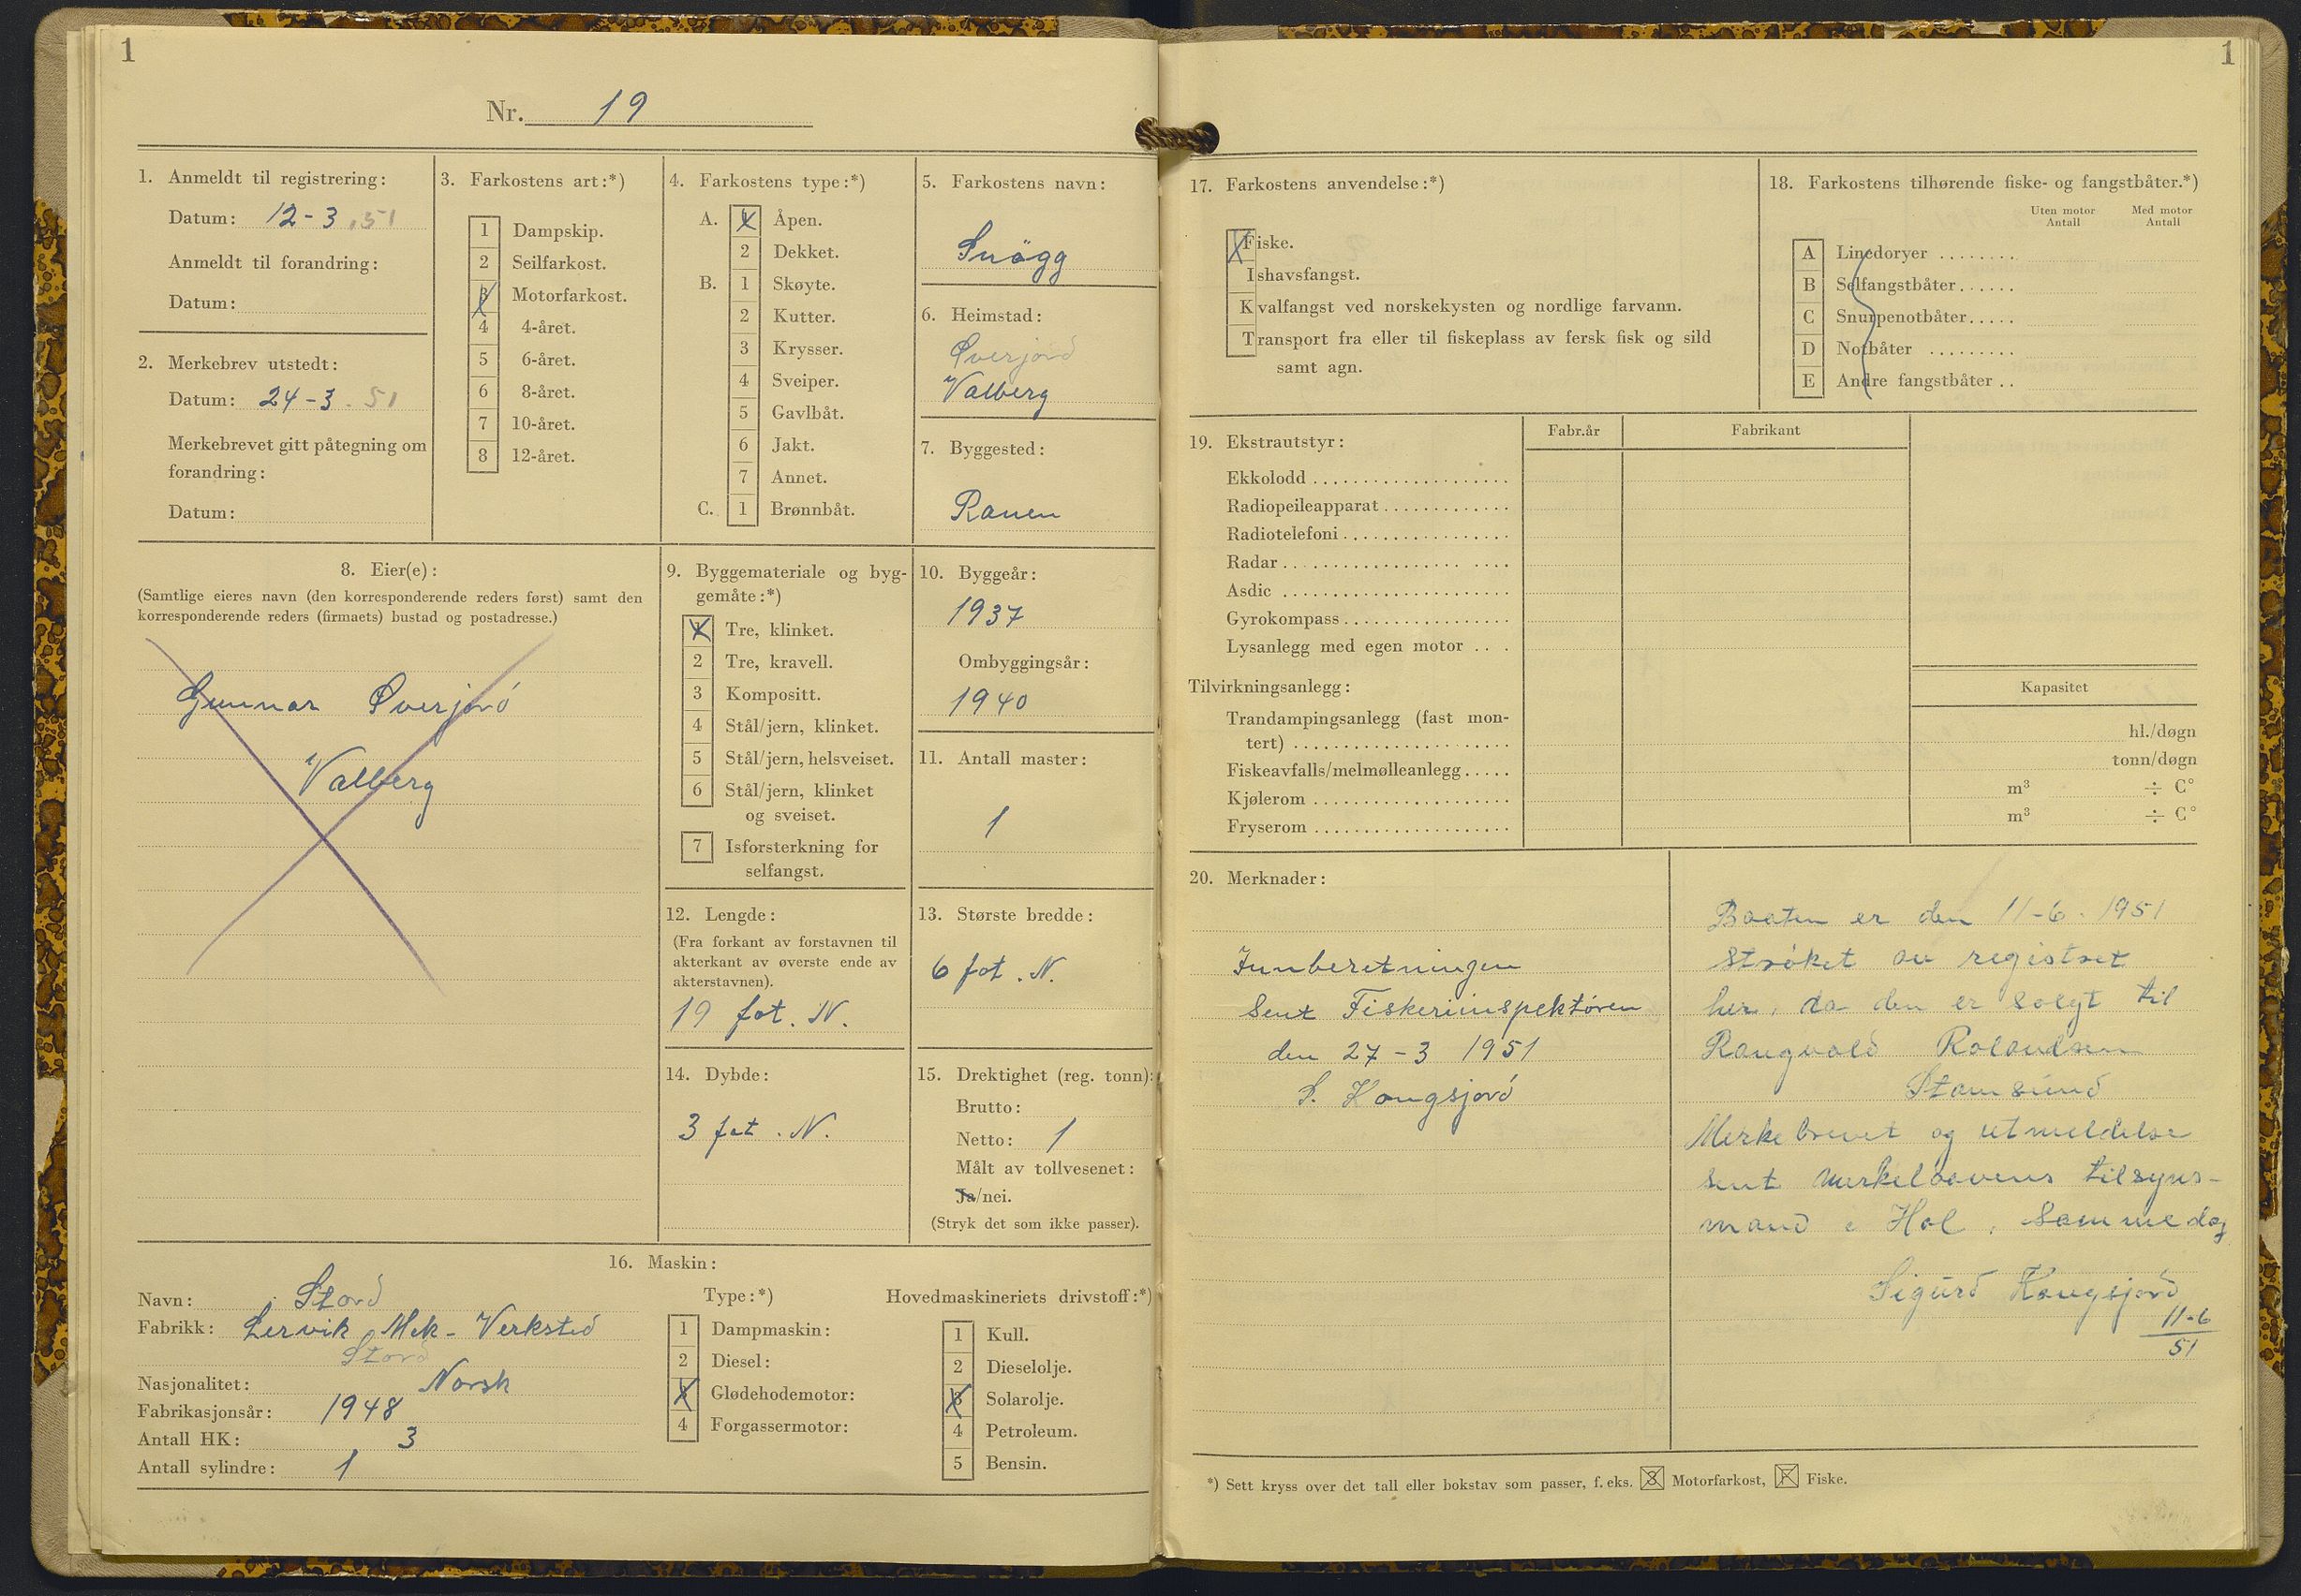 1
Nr. 19
1. Anmeldt til registrering:
Datum: 12-3.51
Anmeldt til forandring:
Datum:
2. Merkebrev utstedt:
Datum: 24-3.51
Merkebrevet gitt påtegning om
forandring:
Datum:
3. Farkostens art:*)
1 Dampskip.
2 Seilfarkost.
3 Motorfarkost.
4 4-året.
5 6-året.
6 8-året.
7 10-året.
8 12-året.
4. Farkostens type:*)
A. 1 Åpen.
2 Dekket.
B. 1 Skøyte.
2 Kutter.
3 Krysser.
4 Sveiper.
5 Gavlbåt.
6 Jakt.
7 Annet.
C. 1 Brønnbåt.
5. Farkostens navn:
Snögg
6. Heimstad:
Øverjord
Valberg
7. Byggested:
Ranen
8. Eier(e):
(Samtlige eieres navn (den korresponderende reders først) samt den
korresponderende reders (firmaets) bustad og postadresse.)
Gunnar Øverjord
Valberg
9. Byggemateriale og byg-
gemåte:*)
1 Tre, klinket.
2 Tre, kravell.
3 Kompositt.
4 Stål/jern, klinket.
5 Stål/jern, helsveiset.
6 Stål/jern, klinket
og sveiset.
7 Isforsterkning for
selfangst.
10. Byggeår:
1937
Ombyggingsår:
1940
11. Antall master:
1
12. Lengde:
(Fra forkant av forstavnen til
akterkant av øverste ende av
akterstavnen).
19 fot. N.
13. Største bredde:
6 fot. N.
14. Dybde:
3 fot. N.
15. Drektighet (reg. tonn):
Brutto:
Netto: 1
Målt av tollvesenet:
Ja/nei.
(Stryk det som ikke passer).
16. Maskin:
Navn: Stord
Fabrikk: Lervik Mek- Verksted
Stord
Nasjonalitet: Norsk
Fabrikasjonsår: 1948
Antall HK: 3
Antall sylindre: 1
Type:*)
1 Dampmaskin:
2 Diesel:
3 Glødehodemotor:
4 Forgassermotor:
Hovedmaskineriets drivstoff:*)
1 Kull.
2 Dieselolje.
3 Solarolje.
4 Petroleum.
5 Bensin.
1
17. Farkostens anvendelse:*)
Fiske.
Ishavsfangst.
Kvalfangst ved norskekysten og nordlige farvann.
Transport fra eller til fiskeplass av fersk fisk og sild
samt agn.
18. Farkostens tilhørende fiske- og fangstbåter.*)
Uten motor Med motor
Antall Antall
A Linedoryer ........
B Selfangstbåter......
C Snurpenotbåter.....
D Notbåter .........
E Andre fangstbåter ..
19. Ekstrautstyr:
Fabr.år Fabrikant
Ekkolodd ....................
Radiopeileapparat .............
Radiotelefoni .................
Radar .................. ....
Asdic .......................
Gyrokompass .................
Lysanlegg med egen motor ...
Tilvirkningsanlegg:
Kapasitet
Trandampingsanlegg (fast mon-
tert) ...................... hl./døgn
Fiskeavfalls/melmølleanlegg ..... tonn/døgn
Kjølerom .................... m³ ÷ C°
Fryserom .................... m³ ÷ C°
20. Merknader:
Innberetningen
Sent Fiskeriinspektøren
den 27-3 1951
S. Kongsjord
Baaten er den 11-6-1951
strøket av registret
her, da den er solgt til
Rangvald Rolandsen
Stamsund
Merkebrevet og utmeldelse
sent merkelovens tilsyns-
mand i Hol. samme dag
Sigurd Kongsjord
11-6
51
*) Sett kryss over det tall eller bokstav som passer, f. eks. 3 Motorfarkost, F Fiske.